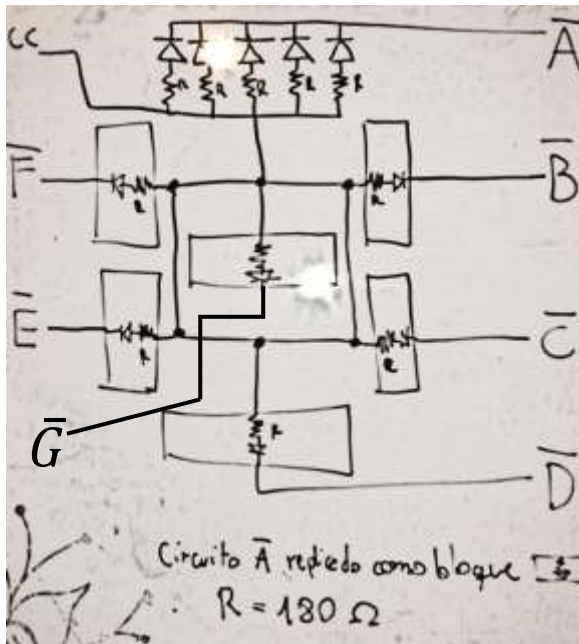 CC
A̅
R R R R R
F̅
R
R
B̅
E̅
R
R
C̅
G̅
R
D̅
Circuito A̅ replicado como bloque
R = 180 Ω